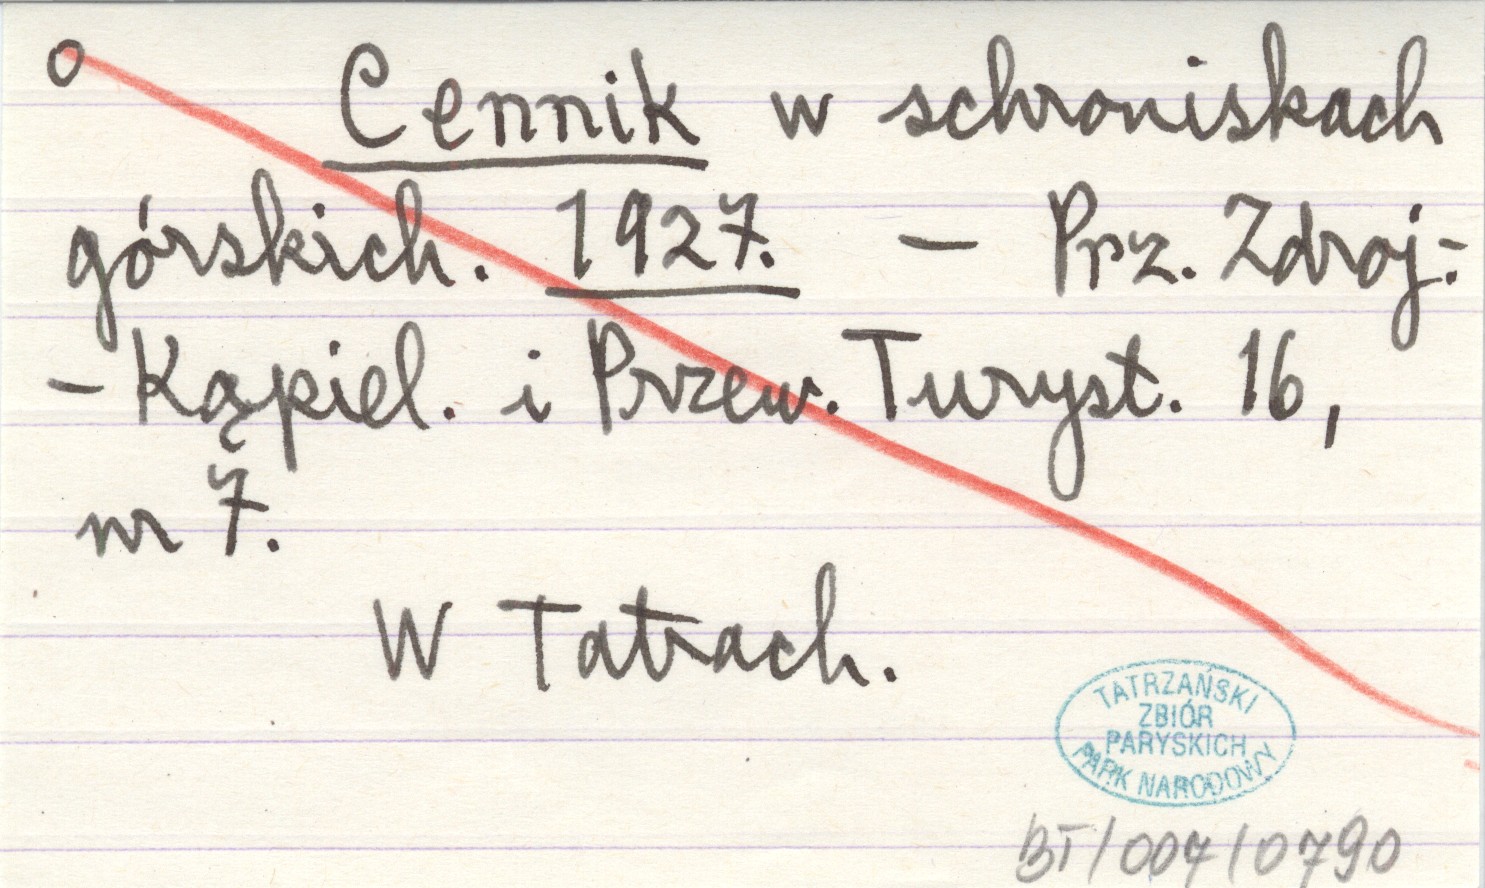 o Cennik w schroniskach
górskich. 1927. — Prz. Zdroj.-
- Kąpiel. i Przew. Turyst. 16,
nr 7.
W Tatrach.
TATRZAŃSKI
ZBIÓR
PARYSKICH
PARK NARODOWY
BT/007/0790